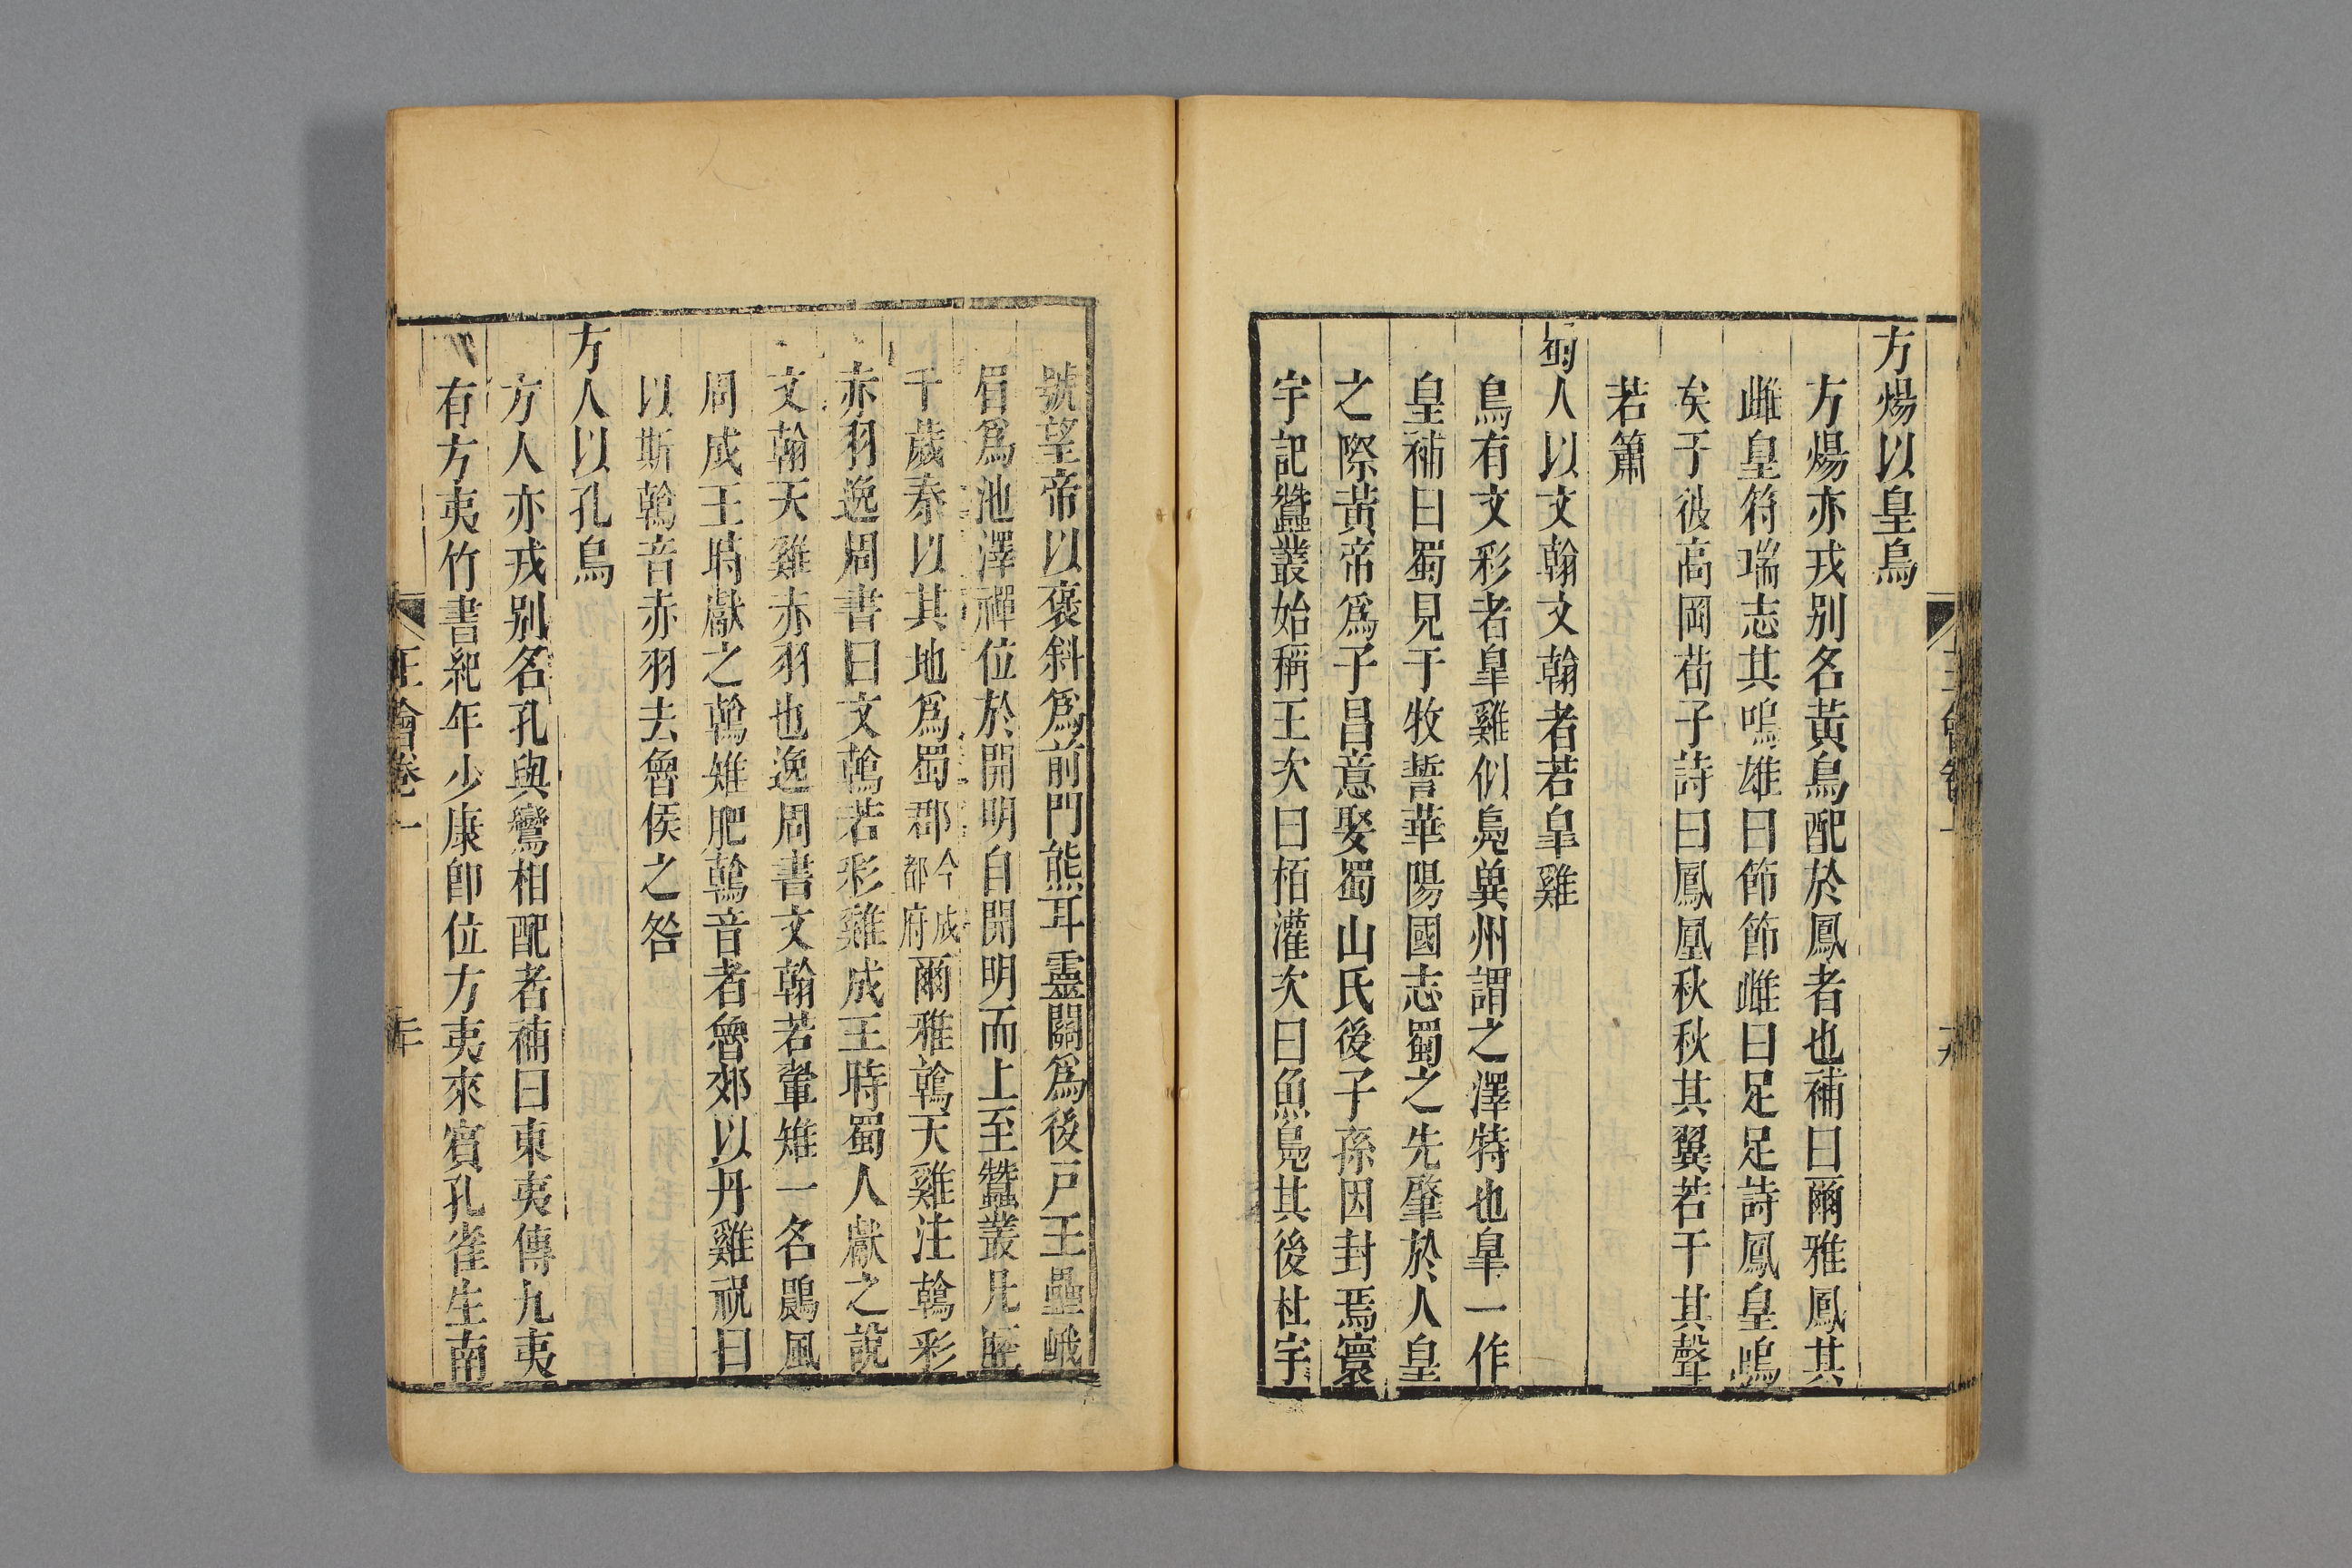 方煬以皇鳥
方煬亦戎别名黃鳥配於鳳者也補曰爾雅鳳其
雌皇符瑞志其鳴雄曰節節雌曰足足詩鳳皇鳴
矣于彼高岡荀子詩曰鳳凰秋秋其翼若干其聲
若簫
蜀人以文翰文翰者若皐雞
鳥有文彩者皐雞似鳧兾州謂之澤特也皐一作
皇補曰蜀見于牧誓華陽國志蜀之先肇於人皇
之際黃帝爲子昌意娶蜀山氏後子孫因封焉寰
宇記蠶叢始稱王次曰栢灌次曰魚鳧其後杜宇
號望帝以褒斜爲前門熊耳靈關爲後戸王壘峨
眉爲池澤禪位於開明自開明而上至蠶叢凡歷
千歲秦以其地爲蜀郡今成都府爾雅鶾天雞注鶾彩
赤羽逸周書曰文鶾若彩雞成王時蜀人獻之說
文翰天雞赤羽也逸周書文翰若翬雉一名鷐風
周成王時獻之鶾雉肥鶾音者魯郊以丹雞祝曰
以斯鶾音赤羽去魯侯之咎
方人以孔鳥
方人亦戎别名孔與鸞相配者補曰東夷傳九夷
有方夷竹書紀年少康卽位方夷來賓孔雀生南
王會卷一